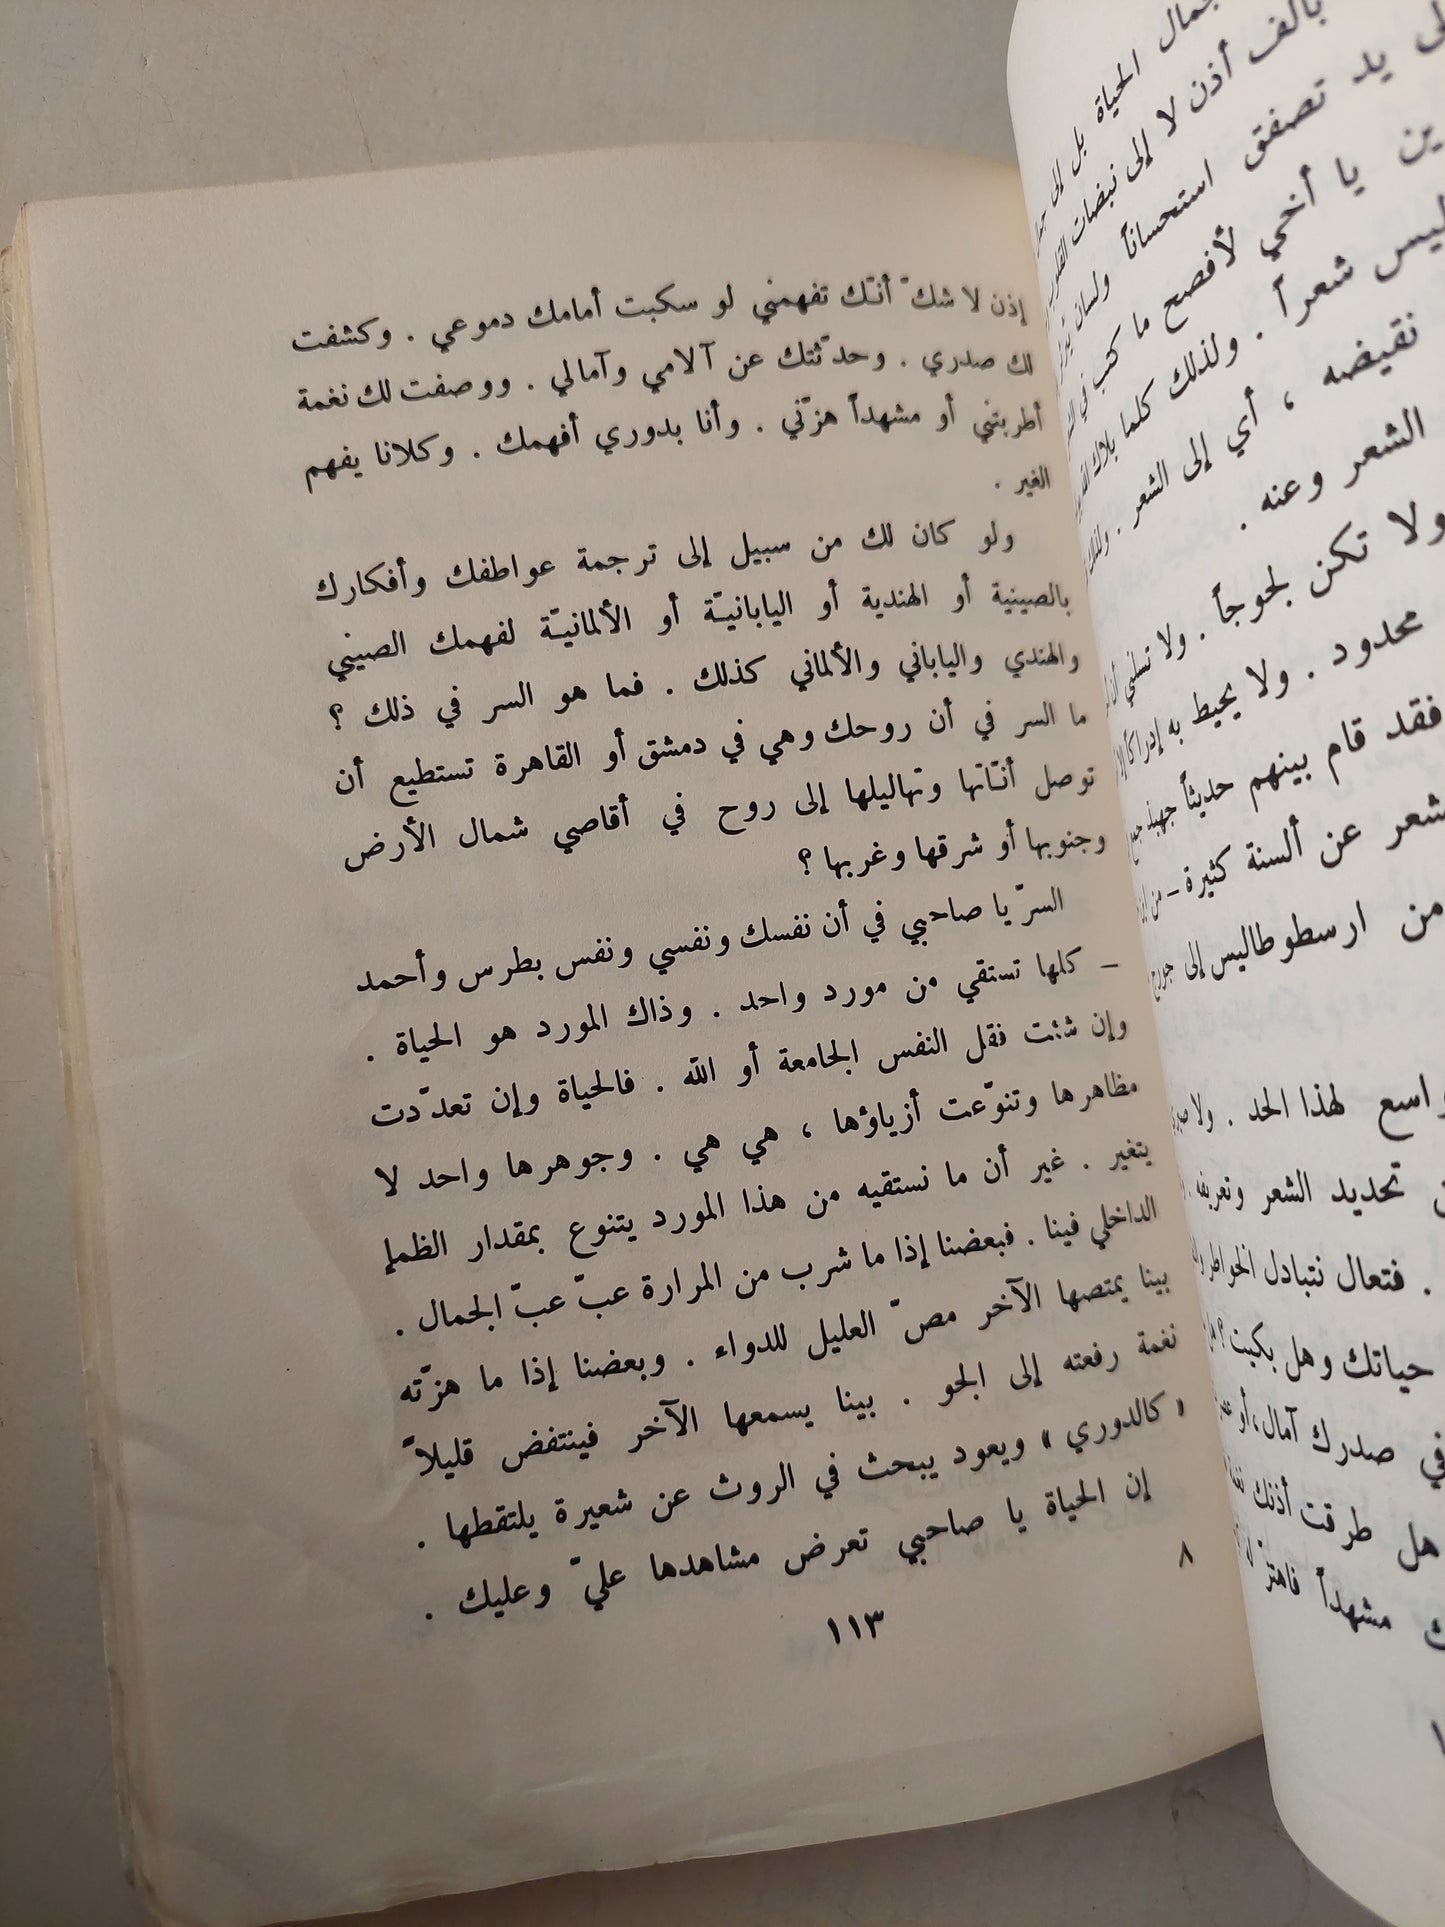 جمال الحياة بل إلى
بألف أذن لا إلى نبضات القلوب
يد تصفق استحساناً ولسان
يا أخي لأفصح ما كتب في
ليس شعراً . ولذلك كلما
نقيضه ، أي إلى الشعر .
الشعر وعنه .
ولا تكن لجوجاً . ولا تسلني
محدود . ولا يحيط به إدراك
فقد قام بينهم حديثاً
عن ألسنة كثيرة –
من ارسطوطاليس إلى
واسع لهذا الحد .
تحديد الشعر وتعريفه .
. فتعال نتبادل الخواطر
حياتك وهل بكيت ؟
في صدرك آمال ، أو
هل طرقت أذنك
مشهداً فاهتز
إذن لا شكّ أنّك تفهمني لو سكبت أمامك دموعي . وكشفت
لك صدري . وحدّثتك عن آلامي وآمالي . ووصفت لك نغمة
أطربتني أو مشهداً هزّني . وأنا بدوري أفهمك . وكلانا يفهم
الغير .
ولو كان لك من سبيل إلى ترجمة عواطفك وأفكارك
بالصينية أو الهندية أو اليابانيّة أو الألمانيّة لفهمك الصيني
والهندي والياباني والألماني كذلك . فما هو السر في ذلك ؟
ما السر في أن روحك وهي في دمشق أو القاهرة تستطيع أن
توصل أنّاتها وتهاليلها إلى روح في أقاصي شمال الأرض
وجنوبها أو شرقها وغربها ؟
السرّ يا صاحبي في أن نفسك ونفسي ونفس بطرس وأحمد
– كلها تستقي من مورد واحد . وذاك المورد هو الحياة .
وإن شئت فقل النفس الجامعة أو الله . فالحياة وإن تعدّدت
مظاهرها وتنوّعت أزياؤها ، هي هي . وجوهرها واحد لا
يتغير . غير أن ما نستقيه من هذا المورد يتنوع بمقدار الظمإ
الداخلي فينا . فبعضنا إذا ما شرب من المرارة عبّ عبّ الجمال .
بينا يمتصها الآخر مصّ العليل للدواء . وبعضنا إذا ما هزّته
نغمة رفعته إلى الجو . بينا يسمعها الآخر فينتفض قليلاً
« كالدوري » ويعود يبحث في الروث عن شعيرة يلتقطها .
إن الحياة يا صاحبي تعرض مشاهدها عليّ وعليك .
٨
١١٣